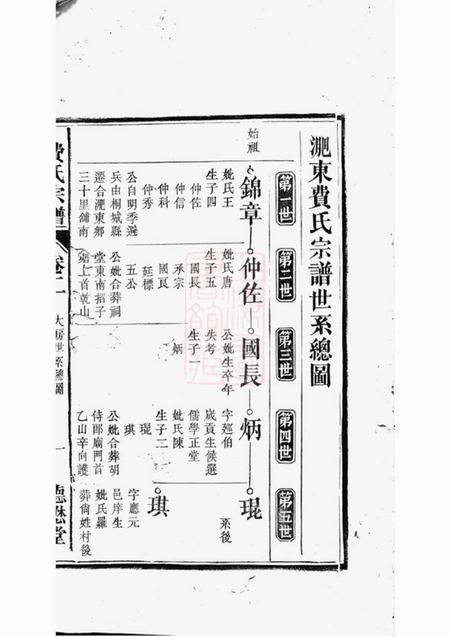 淝東費氏宗譜世系總圖
第一世
第二世
第三世
第四世
第五世
始祖
錦章
妣氏王
生子四
仲佐
仲信
仲科
仲秀
公自明季遷
兵由桐城縣
遷合淝東鄉
三十里舖南
仲佐
妣氏唐
生子五
國長
承宗
國艮
廷標
五公
公妣合葬祠
堂東南招子
崗上首乾山
國長
公妣生卒年
失考
生子一
炳
炳
字廷伯
歲貢生候選
儒學正堂
妣氏陳
生子二
琨
琪
公妣合葬胡
侍郎廟門首
乙山辛向護
琨
系後
琪
字應元
邑庠生
妣氏羅
葬尙姓村後
費氏宗譜
卷二
大房世系總圖
一
德懋堂